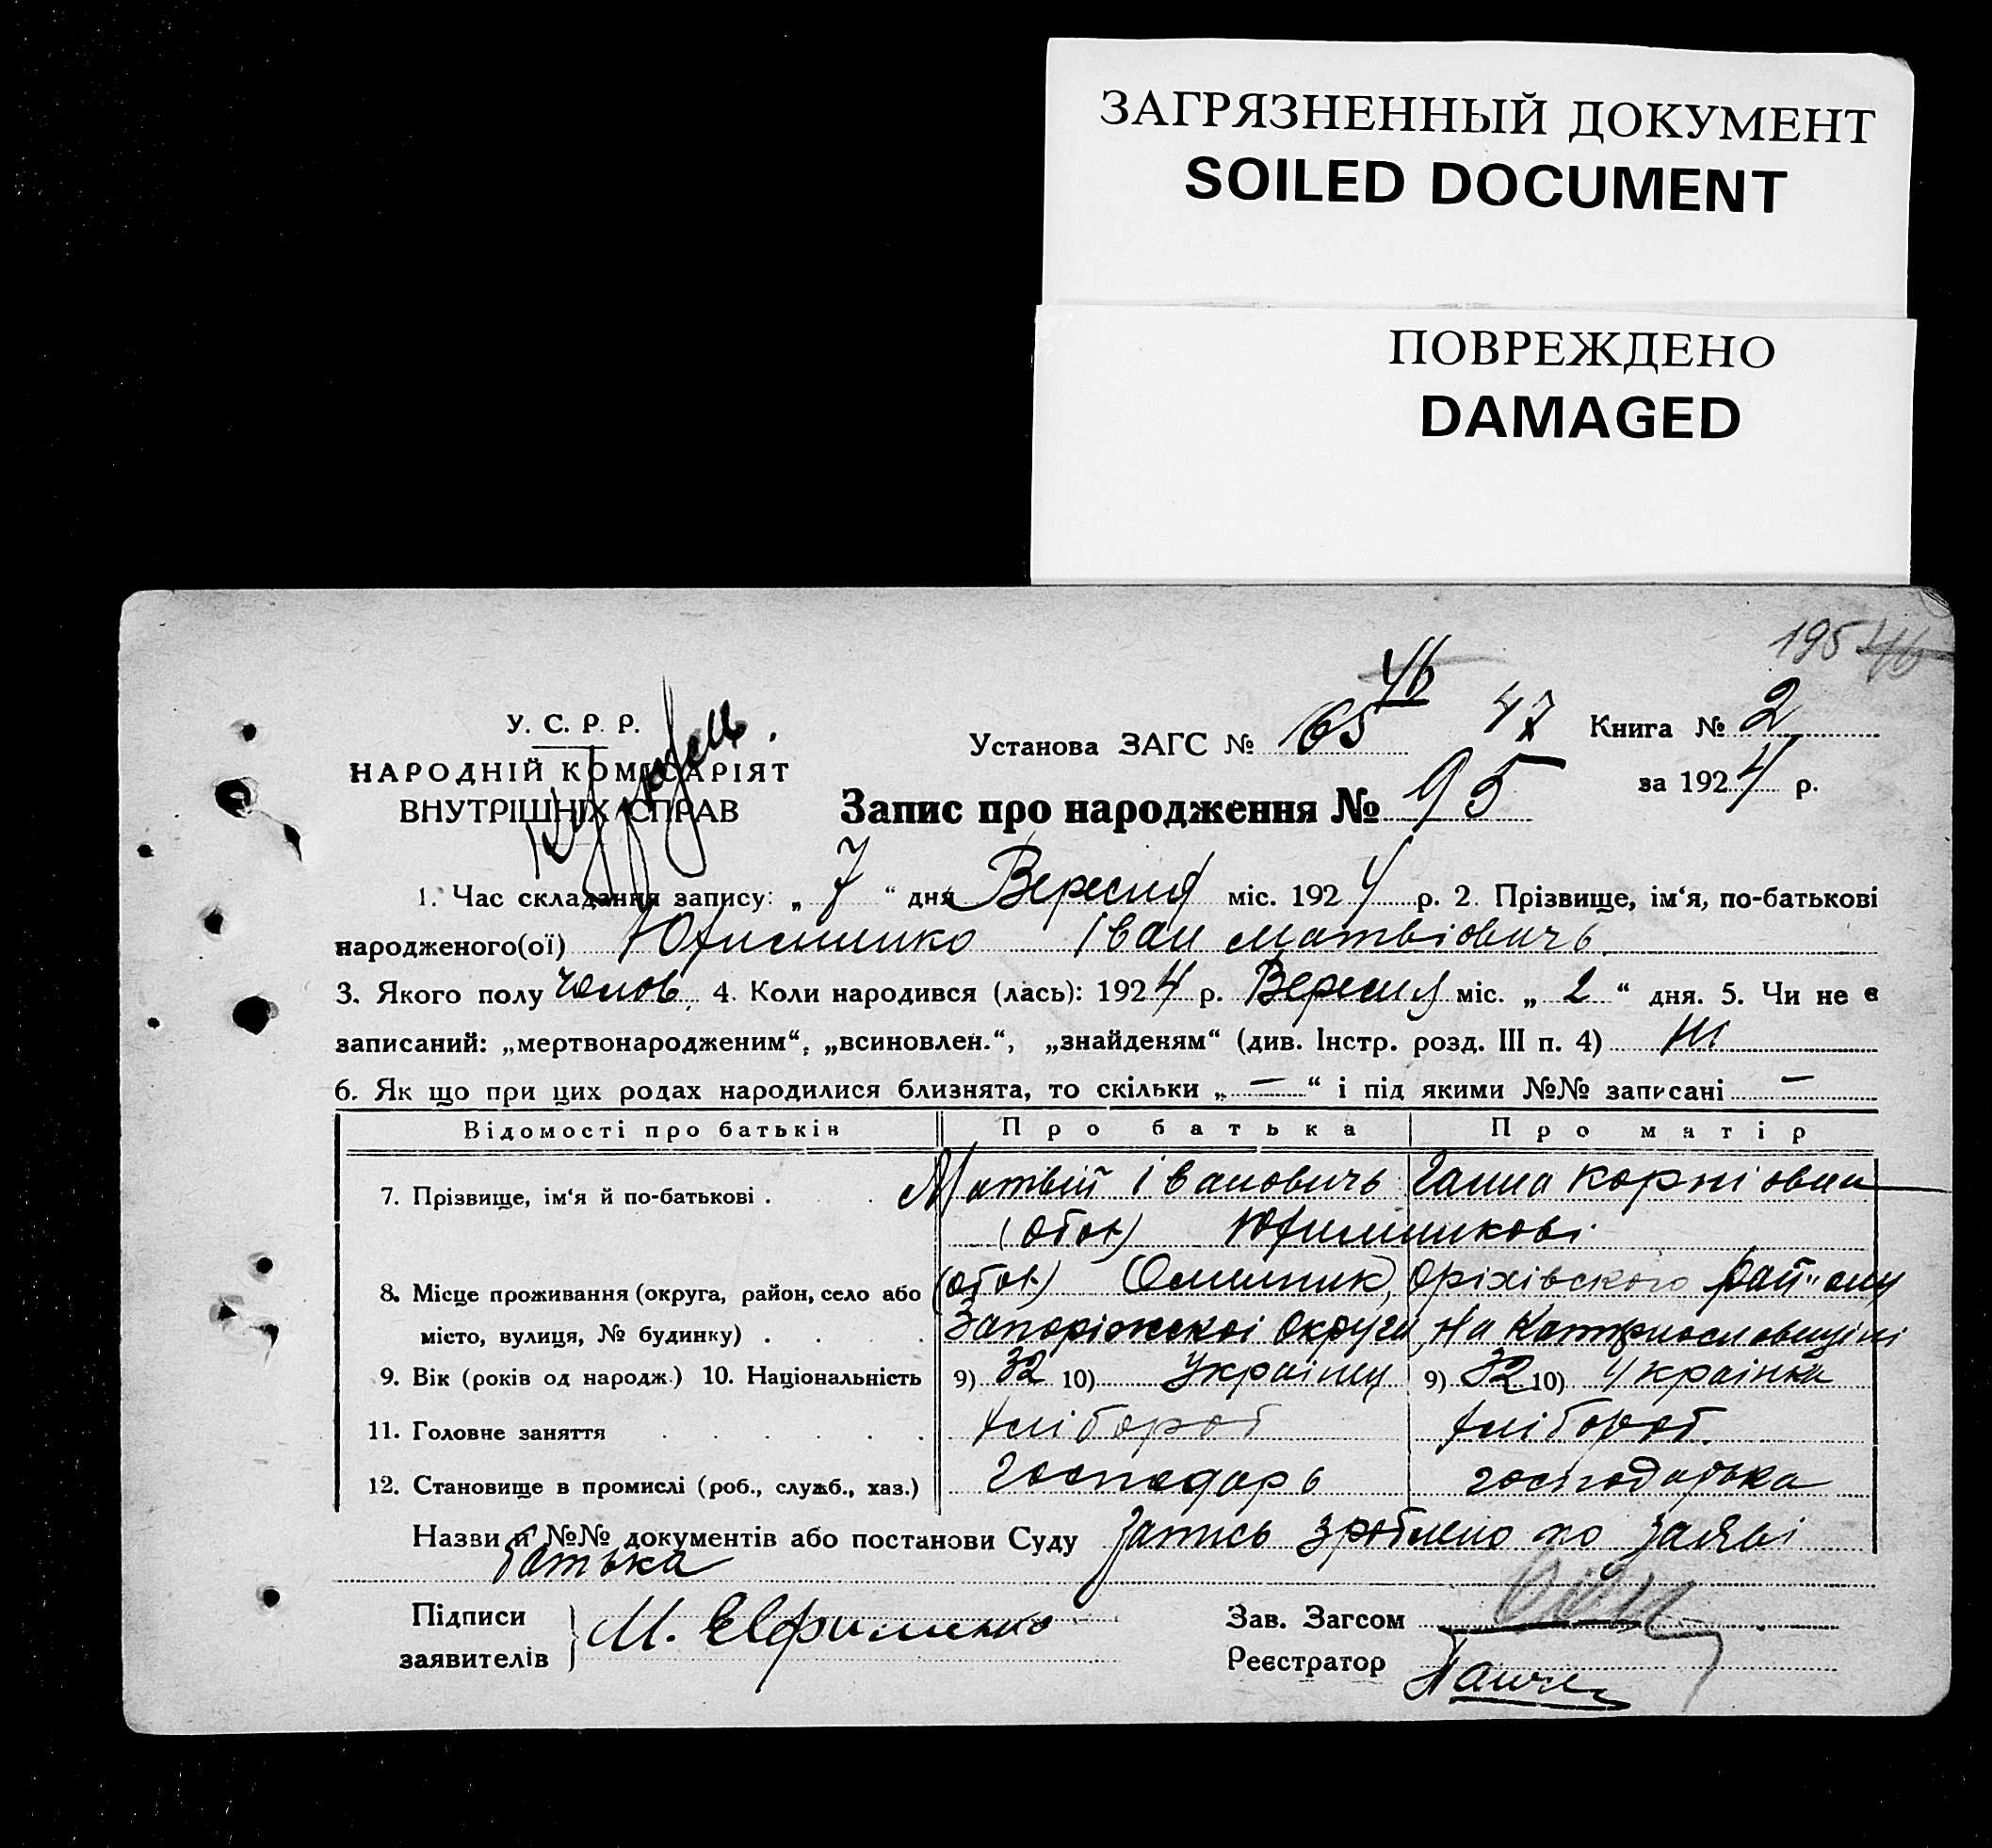 ЗАГРЯЗНЕННЫЙ ДОКУМЕНТ
SOILED DOCUMENT
ПОВРЕЖДЕНО
DAMAGED
195 46
46
У. С. Р. Р.
НАРОДНІЙ КОМІСАРІЯТ
ВНУТРІШНІХ СПРАВ
Установа ЗАГС № 65 47 Книга № 2
за 1924 р.
Запис про народження № 95
1. Час складання запису: „ 7 “ дня Вересня міс. 1924 р. 2. Прізвище, ім‘я, по-батькові
народженого(ої) Юхименко Іван Матвіовичь
3. Якого полу чолов. 4. Коли народився (лась): 1924 р. Вересня міс. „ 2 “ дня. 5. Чи не є
записаний: „мертвонародженим“, „всиновлен.“, „знайденям“ (див. Інстр. розд. III п. 4) Ні
6. Як що при цих родах народилися близнята, то скільки „ — “ і під якими №№ записані —
Відомості про батьків Про батька Про матір
7. Прізвище, ім‘я й по-батькові . . Матвій Івановичь Ганна Корніовна
(обоє) Юхименкові
8. Місце проживання (округа, район, село або (обоє) Омельник, Оріхівского району
місто, вулиця, № будинку) . . . . Запоріжскоі округи, на Катеринославщині
9. Вік (років од народж.) 10. Національність 9) 32 10) Украінец 9) 32 10) Украінка
11. Головне заняття . . . . . . хлібороб хлібороб.
12. Становище в промислі (роб., служб., хаз.) господарь господарька
Назви й №№ документів або постанови Суду Запись зроблено по заяві
батька
Підписи
заявителів М. Евфименко
Зав. Загсом
Реєстратор